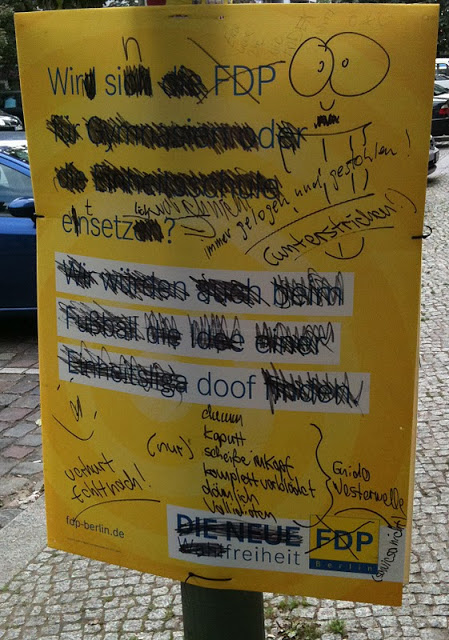 Wird sich die FDP
für Gymnasium oder
die Einheitsschule
einsetzen?
immer gelogen und gestohlen!
(unterstrichen!)
Wir würden auch beim
Fußball die Idee einer
Einheitsliga doof finden.
dumm
kaputt
(nur)
scheiße im Kopf
komplett verblödet
dämlich
Vollidioten
Guido
Westerwelle
fdp-berlin.de
DIE NEUE
Wahlfreiheit
FDP
Berlin